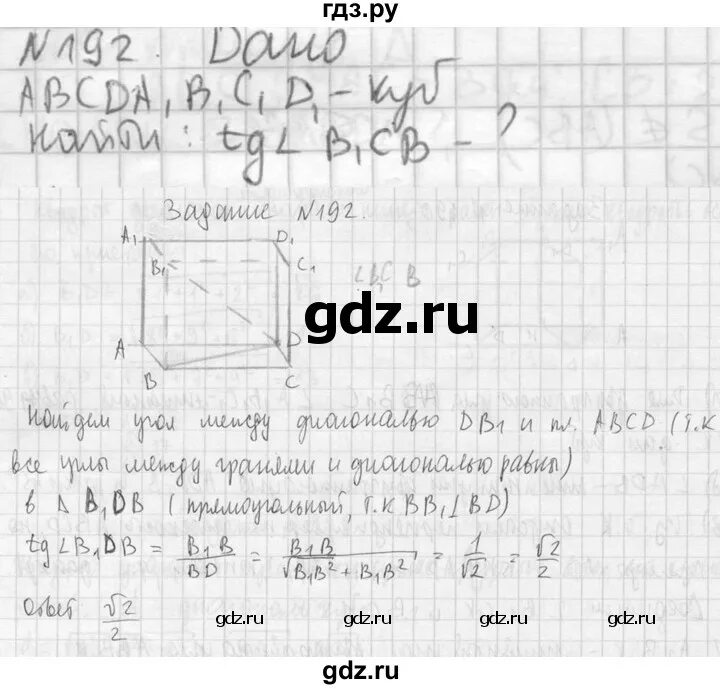 гдз.ру
N192. Дано
ABCDA₁B₁C₁D₁ - куб
Найти: tg∠ B₁CB - ?
Задание N192.
A₁ D₁
B₁ C₁
∠B₁C B
gdz.ru
A D
B C
Найдем угол между диагональю DB₁ и пл. ABCD (т.к
все углы между гранями и диагональю равны)
в Δ B₁DB (прямоугольный, т.к BB₁⊥BD)
tg∠B₁DB = B₁B/BD = B₁B/√(B₁B² + B₁B²) = 1/√2 = √2/2
Ответ √2/2
gdz.ru gdz.ru gdz.ru gdz.ru
gdz.ru